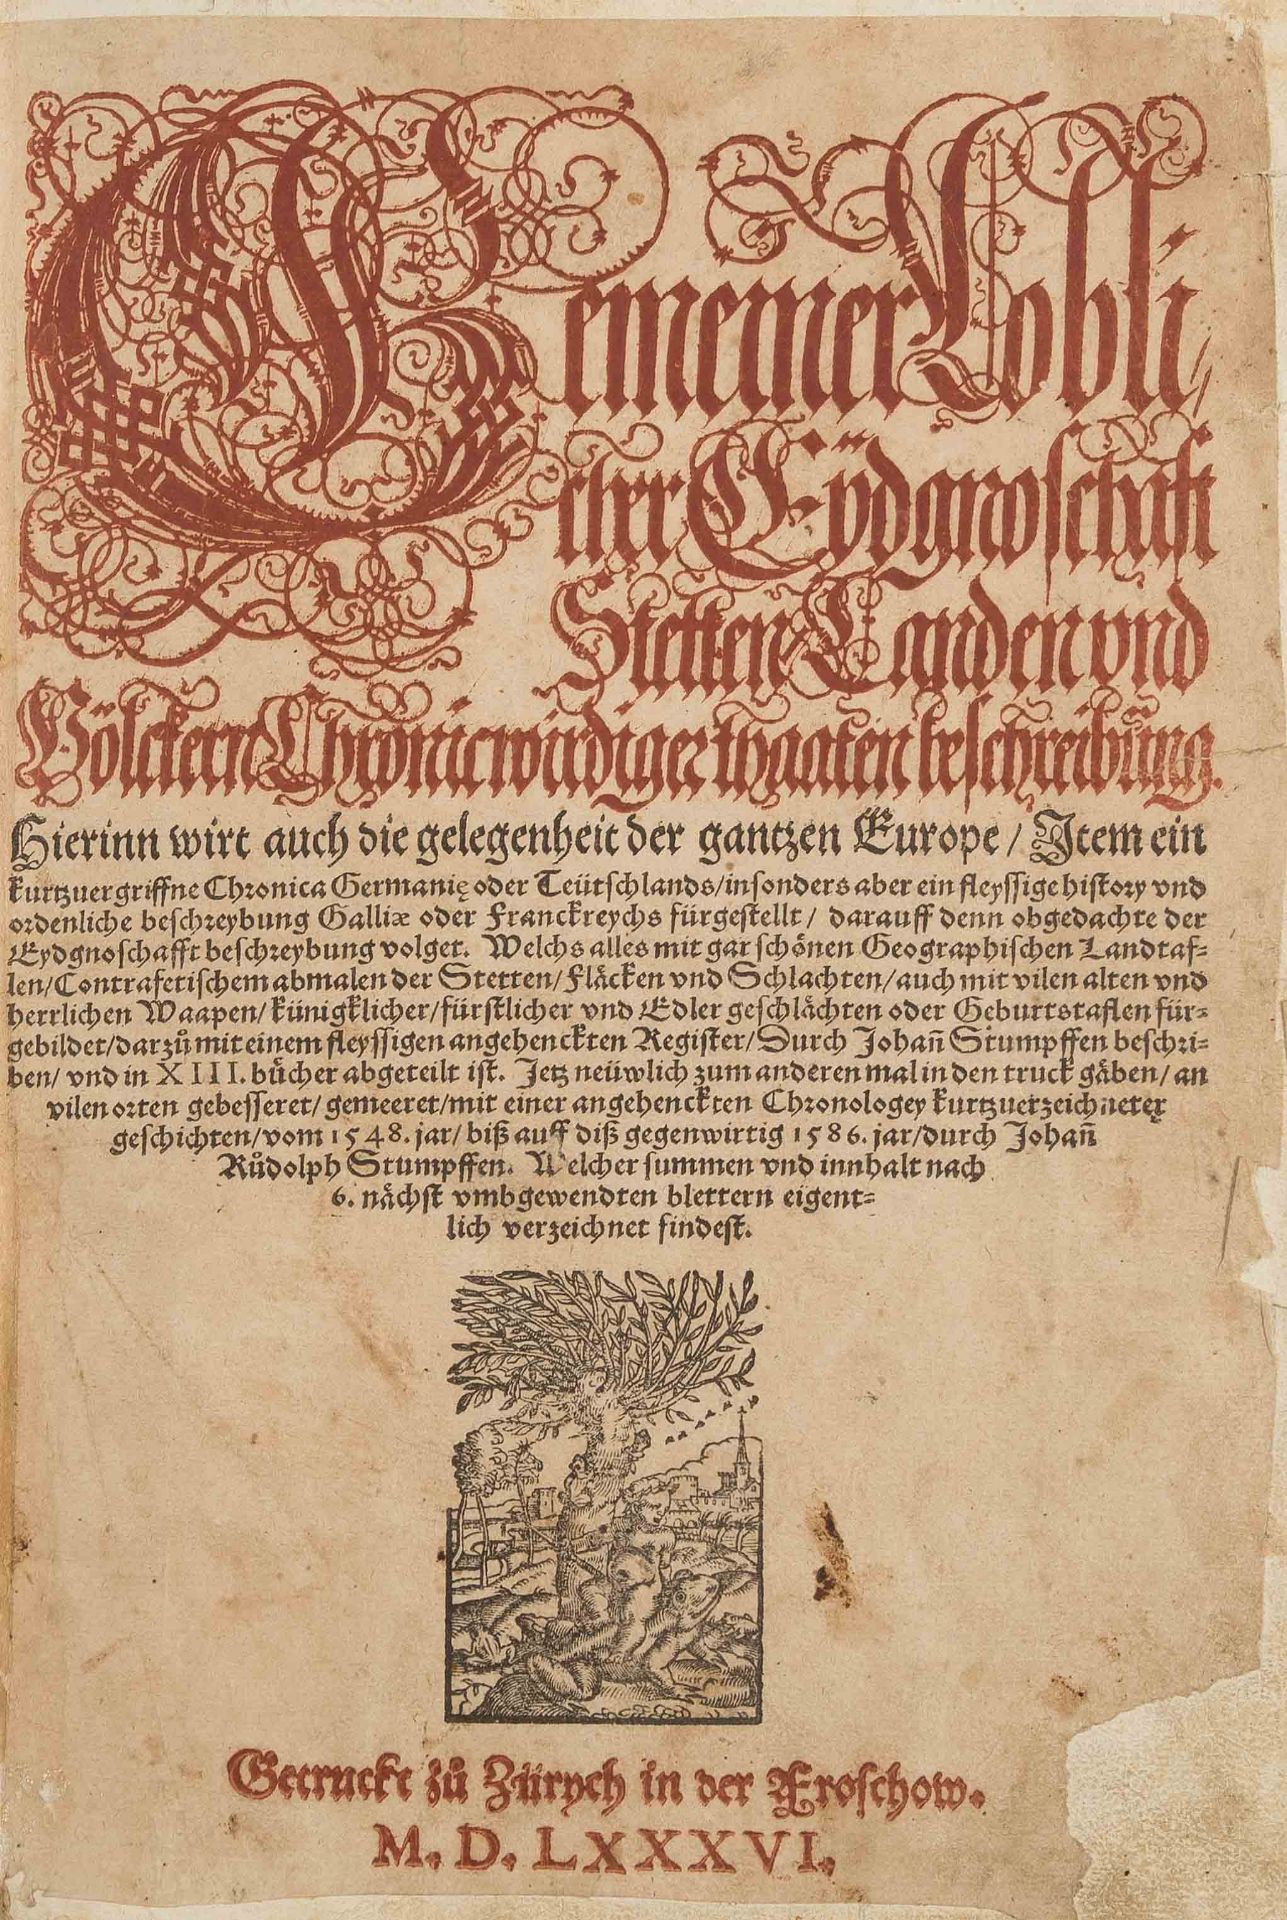 Gemeiner Lobli/
cher Eÿdgnoschafft
Stetten Landen vnd
Völckern Chronicwirdiger thaaten beschreibūng.
Hierinn wirt auch die gelegenheit der gantzen Europe / Item ein
kurtzuergriffne Chronica Germanię oder Teütschlands/insonders aber ein fleyssige history vnd
ordenliche beschreybung Galliæ oder Franckreychs fürgestellt / darauff denn obgedachte der
Eydgnoschafft beschreybung volget. Welchs alles mit gar schönen Geographischen Landtaf-
len/Contrafetischem abmalen der Stetten/Fläcken vnd Schlachten/auch mit vilen alten vnd
herrlichen Waapen/künigklicher/fürstlicher vnd Edler geschlächten oder Geburtstaflen für-
gebildet/darzů mit einem fleyssigen angehenckten Register/Durch Johañ Stumpffen beschri-
ben/ vnd in XIII. bücher abgeteilt ist. Jetz neüwlich zum anderen mal in den truck gäben/ an
vilen orten gebesseret/ gemeeret/mit einer angehenckten Chronologey kurtzuerzeichneter
geschichten/vom 1548. jar/ biß auff diß gegenwirtig 1586. jar/durch Johañ
Růdolph Stumpffen. Welcher summen vnd innhalt nach
6. nächst vmbgewendten blettern eigent-
lich verzeichnet findest.
Getruckt zů Zürych in der Froschow.
M. D. LXXXVI.